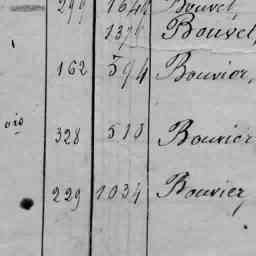 299 1649 Bouvet,
1376 Bouvet,
162 594 Bouvier,
ois
328 510 Bouvier
229 1034 Bouvier,